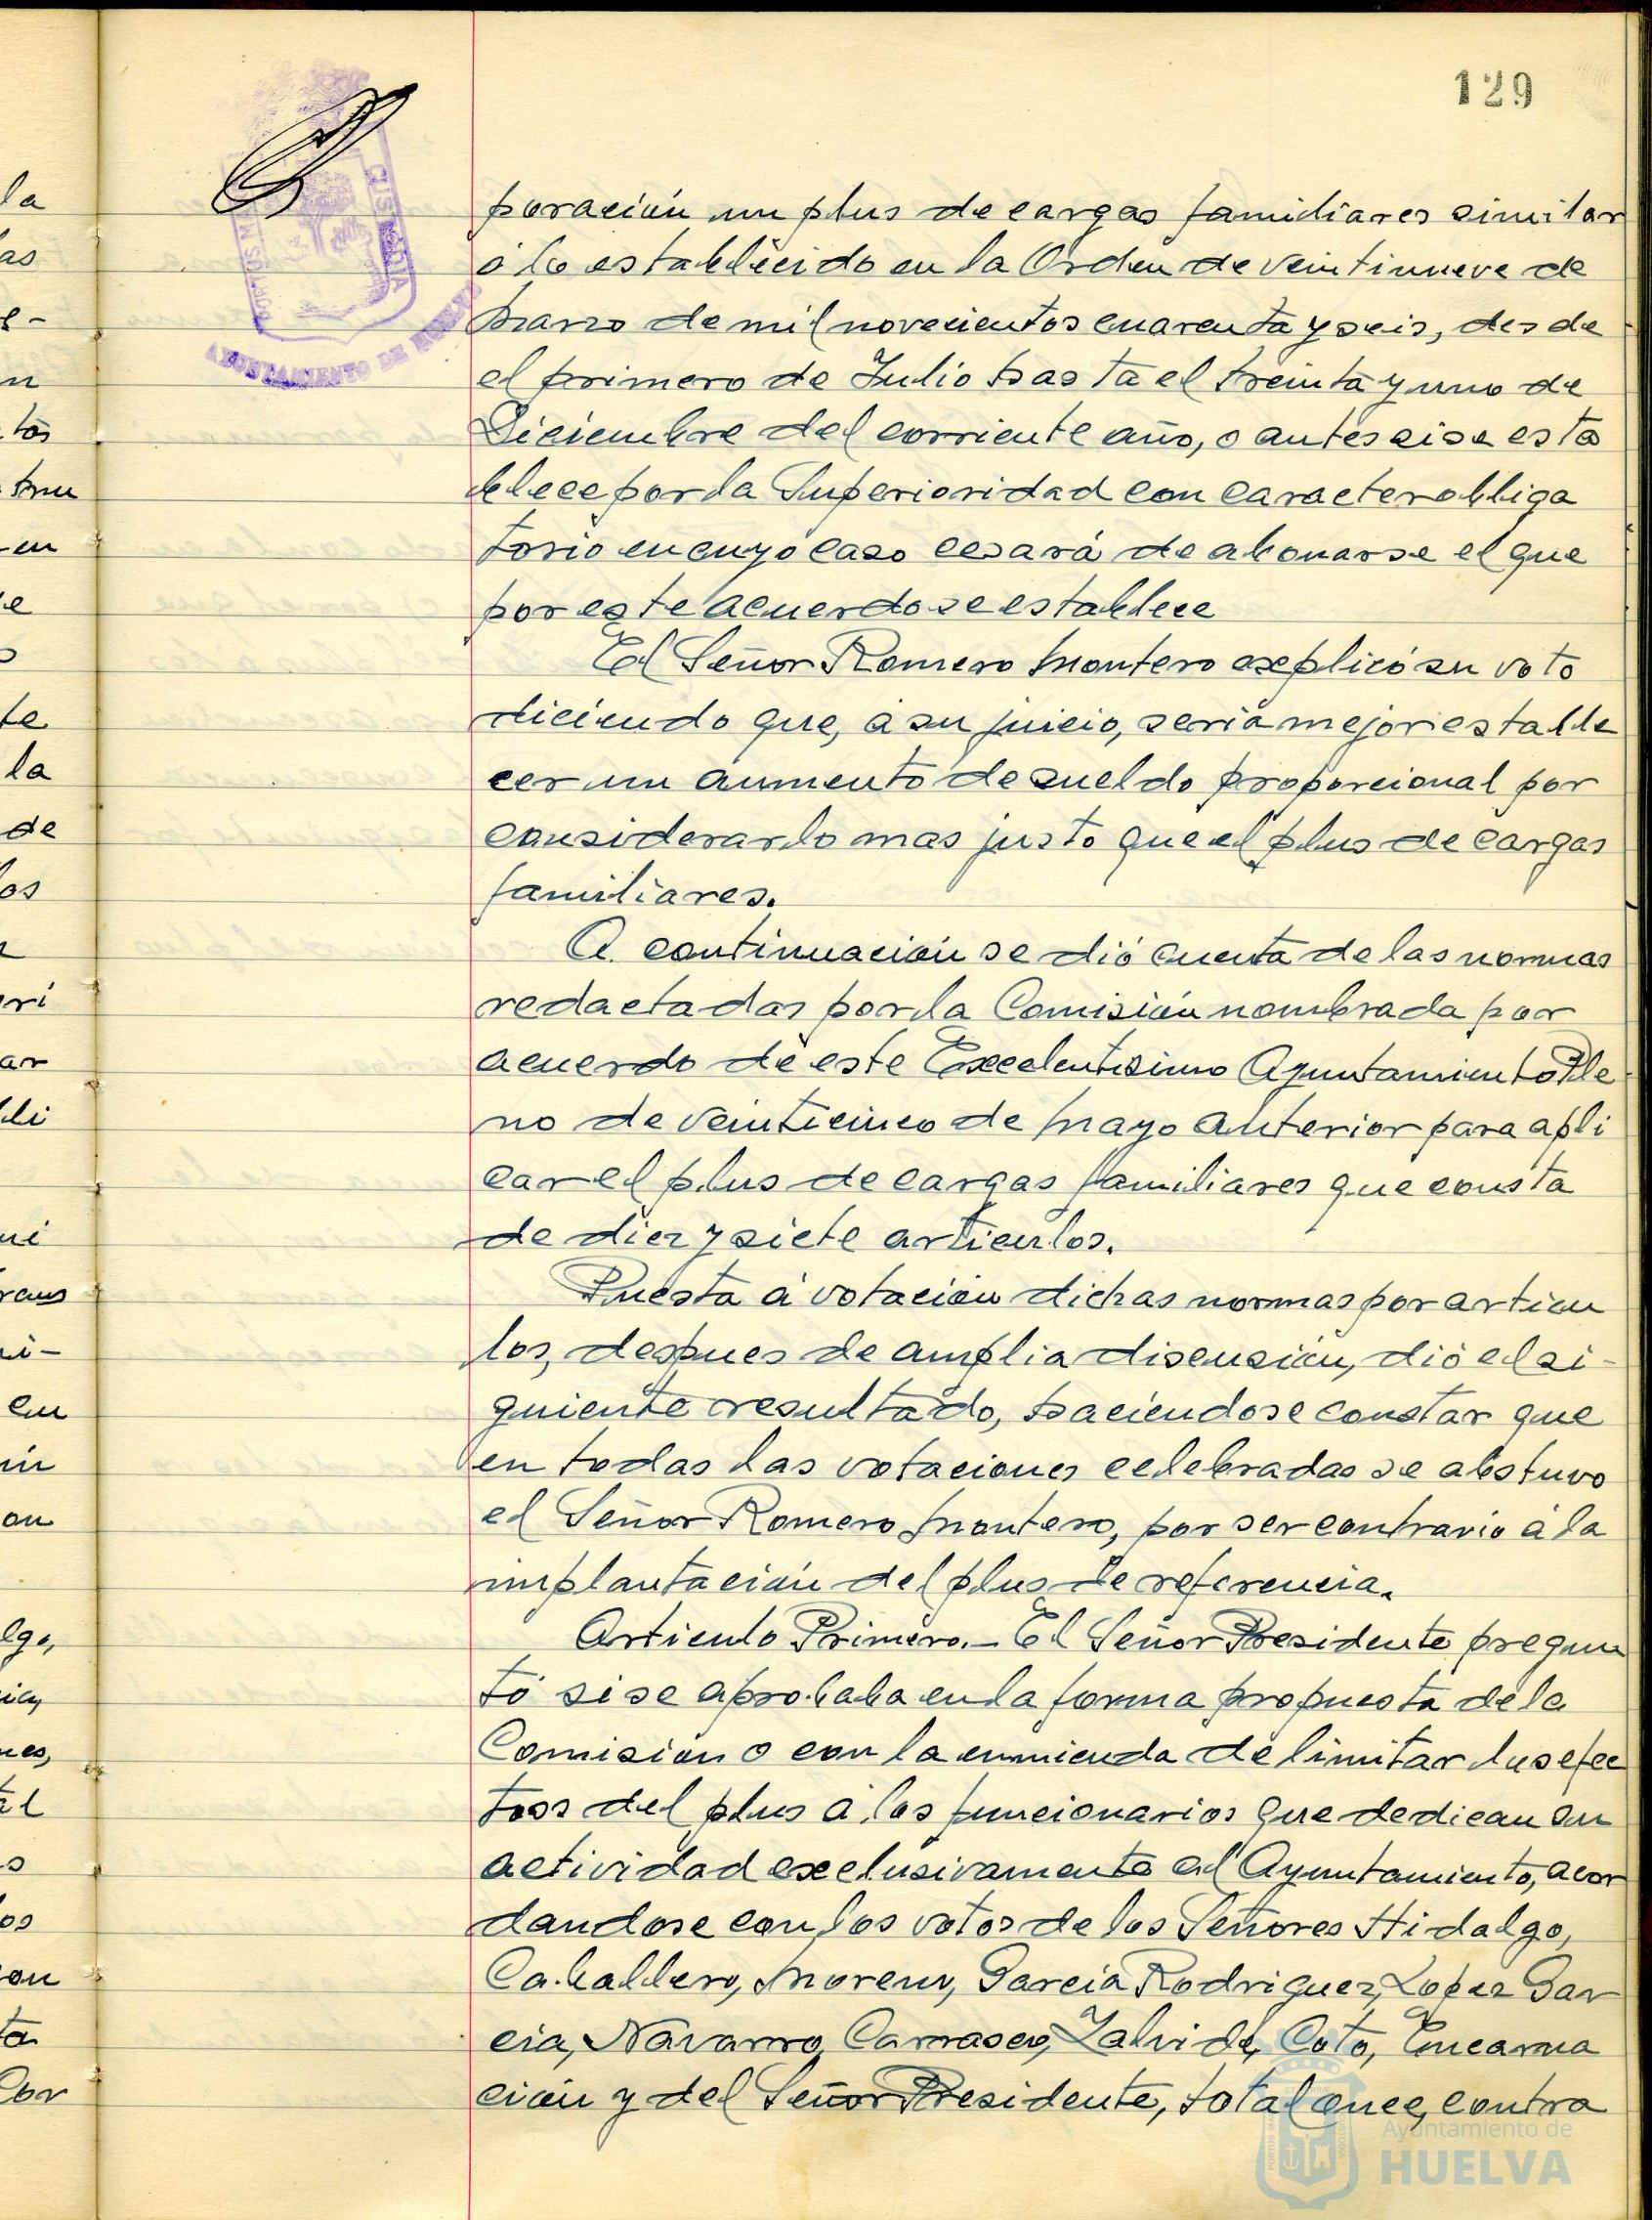 129
poración un plus de cargas familiares similar
á lo establecido en la Orden de veintinueve de
Marzo de mil novecientos cuarenta y seis, desde
el primero de Julio hasta el treinta y uno de
Diciembre del corriente año, o antes si se esta
blece por la Superioridad con caracter obliga
torio en cuyo caso cesará de abonarse el que
por este acuerdo se establece
El Señor Romero Montero explicó su voto
diciendo que, á su juicio, seria mejor estable
cer un aumento de sueldo proporcional por
considerarlo mas justo que el plus de cargas
familiares.
A continuación se dió cuenta de las normas
redactadas por la Comisión nombrada por
acuerdo de este Excelentisimo Ayuntamiento Ple
no de veinticinco de Mayo anterior para apli
car el plus de cargas familiares que consta
de diez y siete articulos.
Puesta á votación dichas normas por articu
los, despues de amplia discusión, dió el si-
guiente resultado, haciendose constar que
en todas las votaciones celebradas se abstuvo
el Señor Romero Montero, por ser contrario á la
implantación del plus de referencia.
Articulo Primero.- El Señor Presidente pregun
tó si se aprobaba en la forma propuesta de la
Comision o con la enmienda de limitar los efec
tos del plus á los funcionarios que dedican su
actividad exclusivamente al Ayuntamiento, acor
dandose con los votos de los Señores Hidalgo,
Caballero, Moreno, Garcia Rodriguez, Lopez Gar
cia, Navarro Carrasco, Zalvide, Coto, Encarna
ción y del Señor Presidente, total once, contra
AYUNTAMIENTO DE HUELVA
Ayuntamiento de
HUELVA